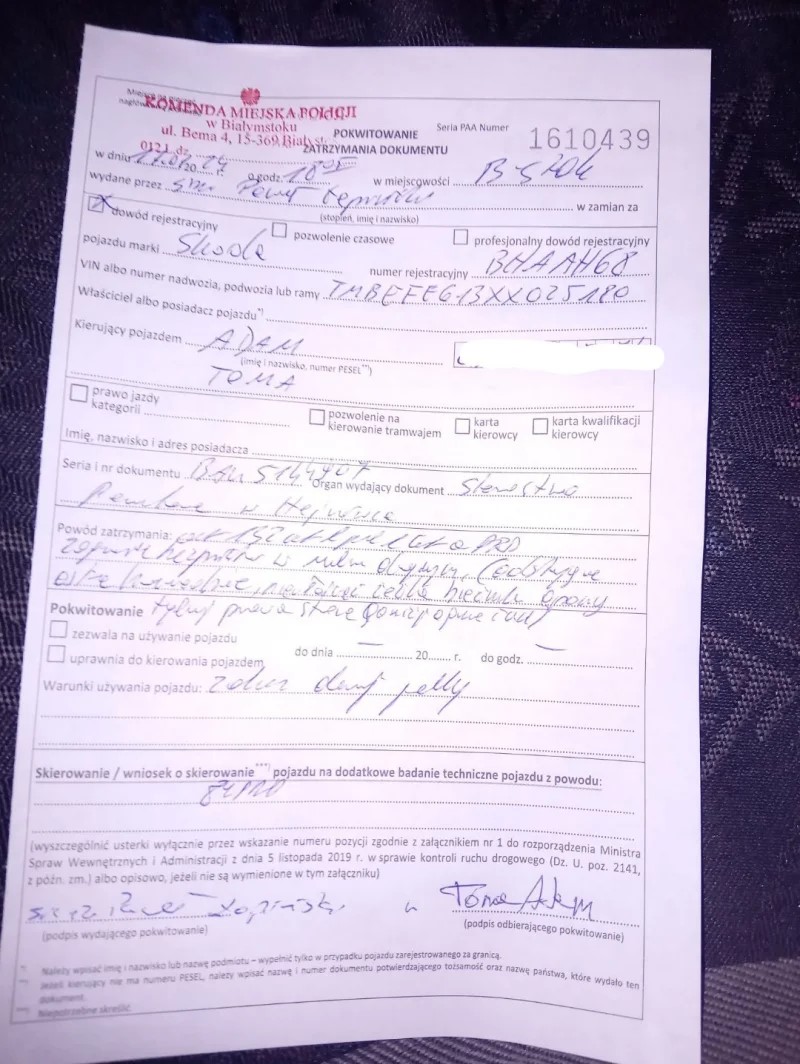 Miejsce na pieczęć
KOMENDA MIEJSKA POLICJI
w Białymstoku
ul. Bema 4, 15-369 Białystok
0121 dz.
POKWITOWANIE
ZATRZYMANIA DOKUMENTU
Seria PAA Numer 1610439
w dniu 20 24 o godz. 18 w miejscowości
wydane przez Paweł w zamian za
(stopień, imię i nazwisko)
dowód rejestracyjny pozwolenie czasowe profesjonalny dowód rejestracyjny
pojazdu marki Skoda numer rejestracyjny BHAAH68
VIN albo numer nadwozia, podwozia lub ramy TMBEFE613XX025180
Właściciel albo posiadacz pojazdu*)
Kierujący pojazdem ADAM
(imię i nazwisko, numer PESEL**)
TOMA
prawo jazdy
kategorii
pozwolenie na
kierowanie tramwajem
karta
kierowcy
karta kwalifikacji
kierowcy
Imię, nazwisko i adres posiadacza
Seria i nr dokumentu Organ wydający dokument Starostwo
w Hajnówce
Powód zatrzymania: art 132
opony
Pokwitowanie
zezwala na używanie pojazdu
uprawnia do kierowania pojazdem
do dnia — 20 r. do godz. —
Warunki używania pojazdu: zakaz dalszej jazdy
Skierowanie / wniosek o skierowanie***) pojazdu na dodatkowe badanie techniczne pojazdu z powodu:
(wyszczególnić usterki wyłącznie przez wskazanie numeru pozycji zgodnie z załącznikiem nr 1 do rozporządzenia Ministra
Spraw Wewnętrznych i Administracji z dnia 5 listopada 2019 r. w sprawie kontroli ruchu drogowego (Dz. U. poz. 2141,
z późn. zm.) albo opisowo, jeżeli nie są wymienione w tym załączniku)
Toma Adam
(podpis wydającego pokwitowanie) (podpis odbierającego pokwitowanie)
*) Należy wpisać imię i nazwisko lub nazwę podmiotu – wypełnić tylko w przypadku pojazdu zarejestrowanego za granicą.
**) Jeżeli kierujący nie ma numeru PESEL, należy wpisać nazwę i numer dokumentu potwierdzającego tożsamość oraz nazwę państwa, które wydało ten
dokument.
***) Niepotrzebne skreślić.